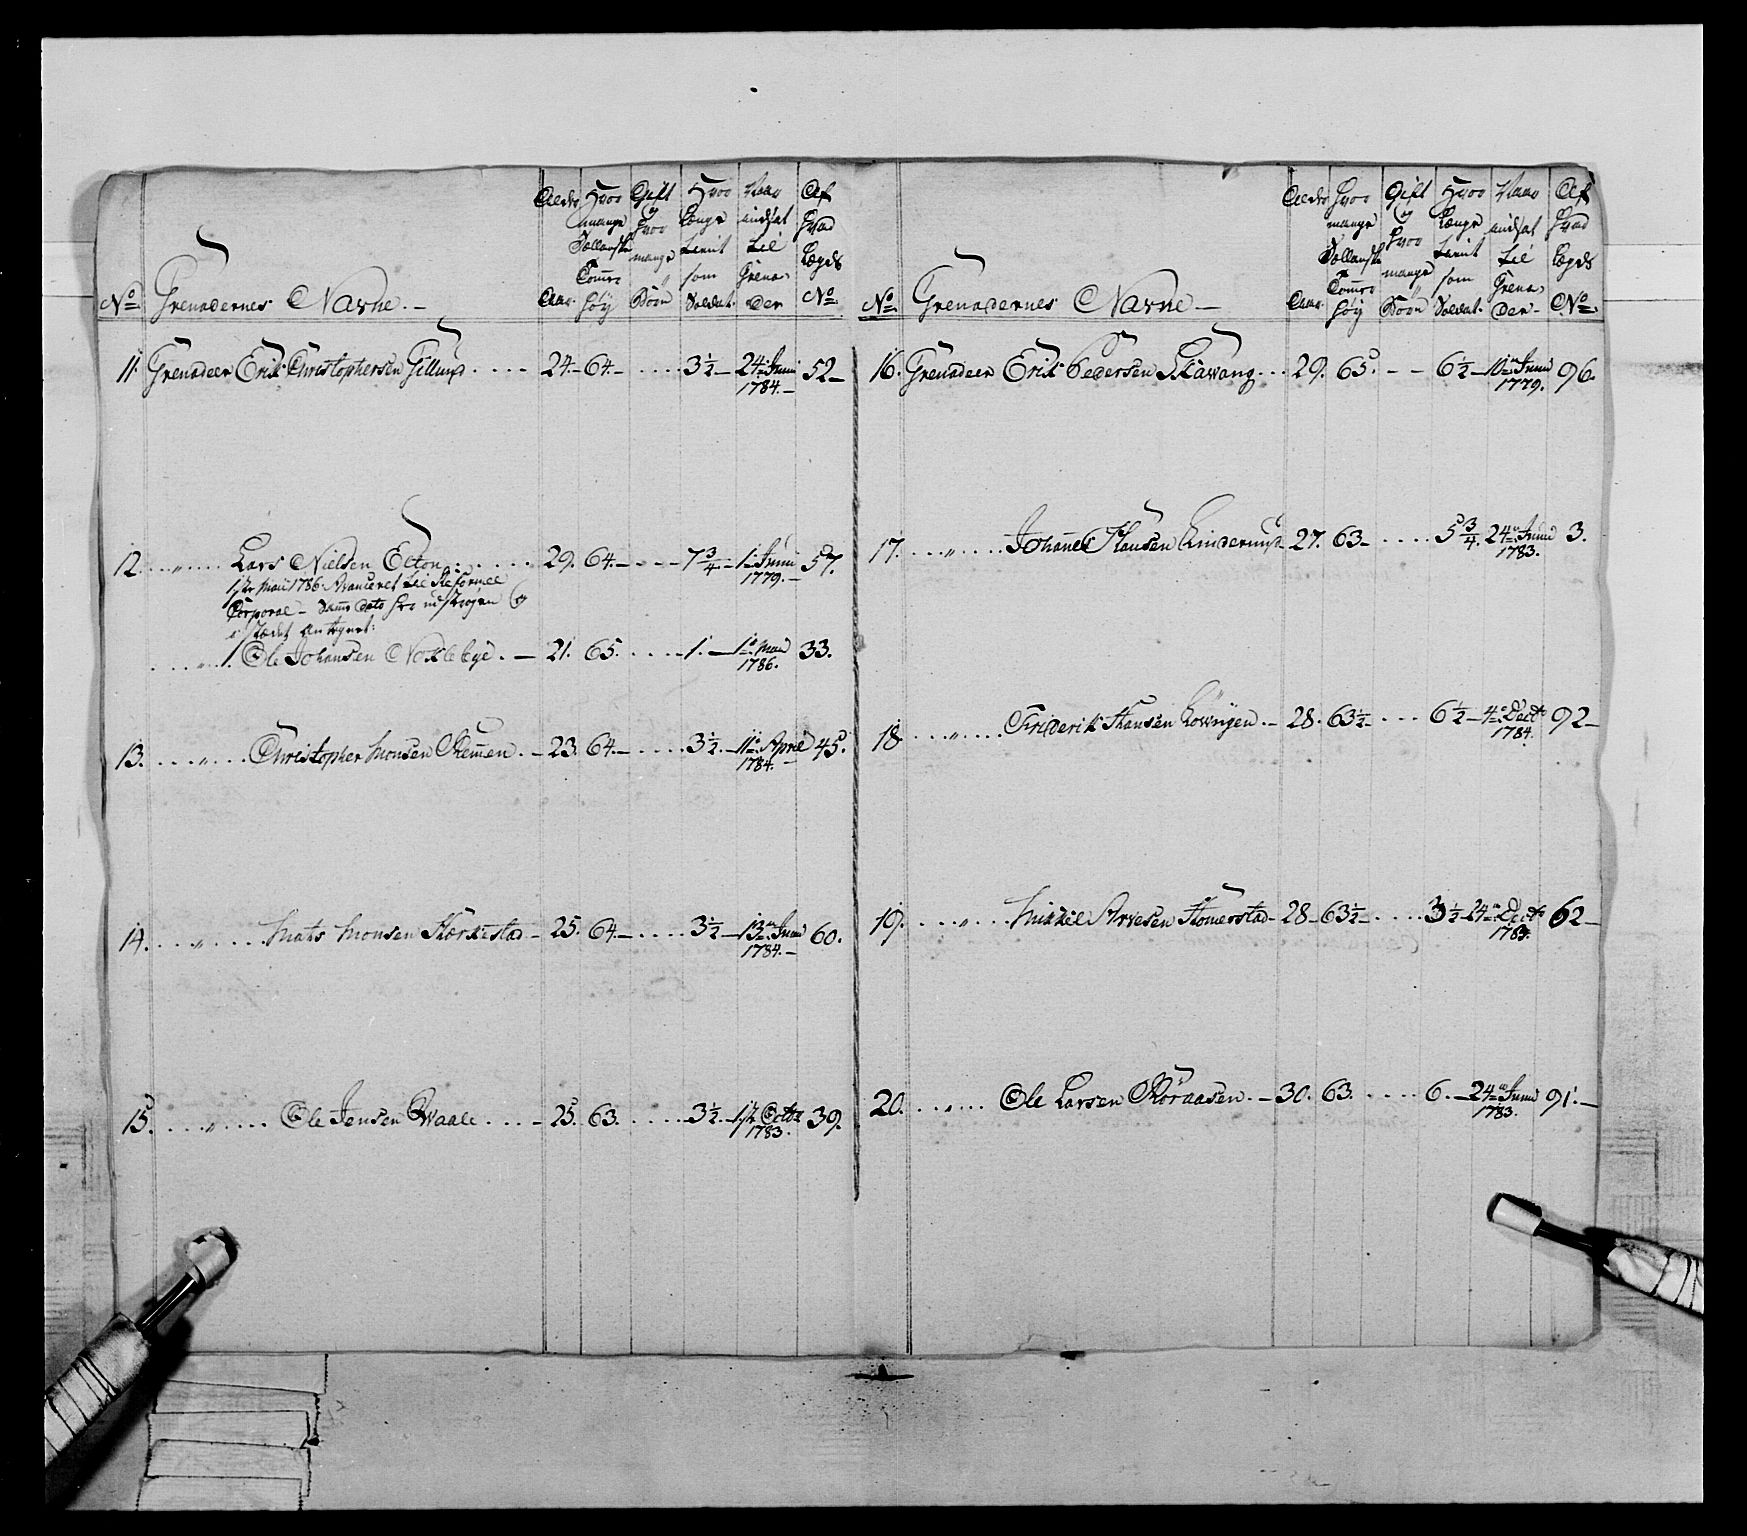 No Grenadernes Navne. Alder Aar. Hvor mange Sællandske Tommer høÿ Gift og hvor mange Børn Hvor længe tient som Soldat. Naar indsat til Grenader Af hvad Lægds No
11. Grenadeer Erik Christophersen 24 64 3½ 24 Junii 1784. 52
12. " Lars Nielsen 29. 64. 7¾ 1 Junii 1779. 57.
1ste Maii 1786 Avanceret til Reformee
Corporal Samme dato udstrøgen og
i stædet antegnet:
" Ole Johansen Noklebye. 21. 65. 1. 1 Maii 1786. 33.
13. " Christopher Monsen 23. 64. 3½ 11 April 1784. 45.
14. " Mats Monsen 25. 64. 3½ 13 Junii 1784. 60.
15. " Ole Jensen Waale 25. 63. 3½ 1ste Octbr 1783. 39.
No Grenadernes Navne Alder Aar. Hvor mange Sællandske Tommer høÿ Gift og hvor mange Børn Hvor længe tient som Soldat. Naar indsat til Grenader Af hvad Lægds No
16. Grenadeer Erik Pedersen 29. 65. 6½ Junii 1779. 96.
17. " Johannes Hansen 27. 63. 5¾ 24 Junii 1783. 3.
18 " Friderik Hansen 28. 63½ 6½ 4 Decbr 1784. 92
19. " Mikkel Arvesen 28 63½ 3½ 24 Decbr 62
20. " Ole Larsen 30. 63. 6. 24 Junii 1783. 91.